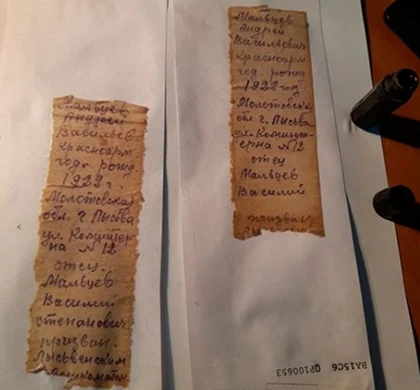 Мальцев
Андрей
Васильев.
красноарм
год. рожд.
1922 г.
Молотовская
обл. г Лысьва
ул. Коминтер
на N 12
отец
Мальцев
Василий
степанович
призван.
Лысьвенским
Мальцев
Андрей
Васильевич
красноарм
год. рожд
1922 год
Молотовская
обл. г. Лысьва
ул. Коминт-
ерна N 12
отец
Мальцев
Василий
призван
BA15C6 QP100653